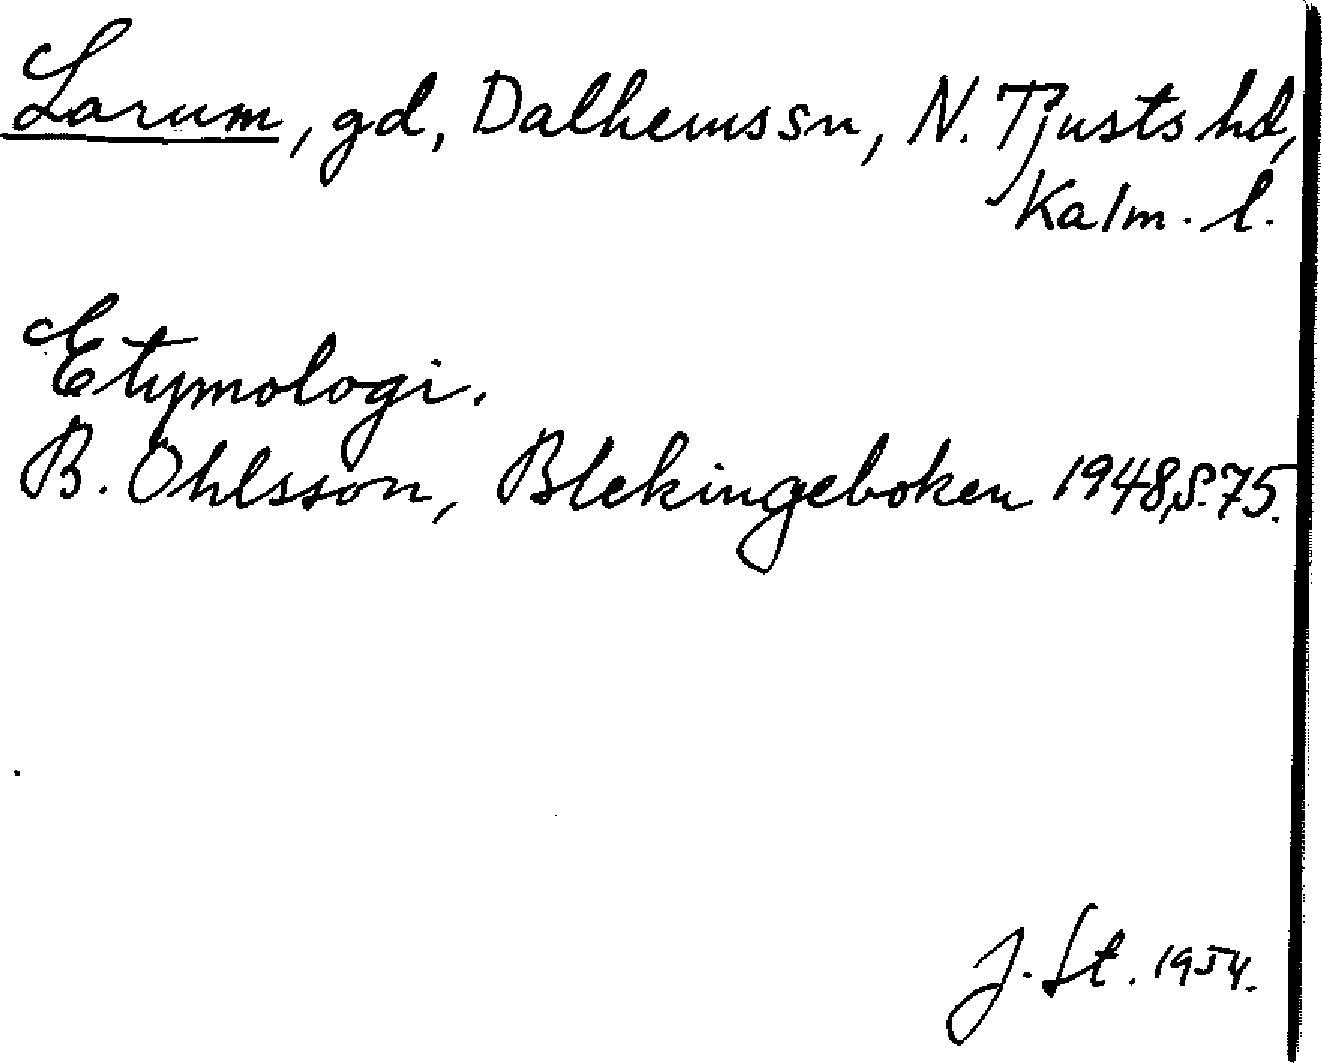 Larum, gd, Dalhemssn, N. Tjusts hd,
Kalm. l.
Etymologi.
B. Ohlsson, Blekingeboken 1948, S. 75.
J. St. 1954.